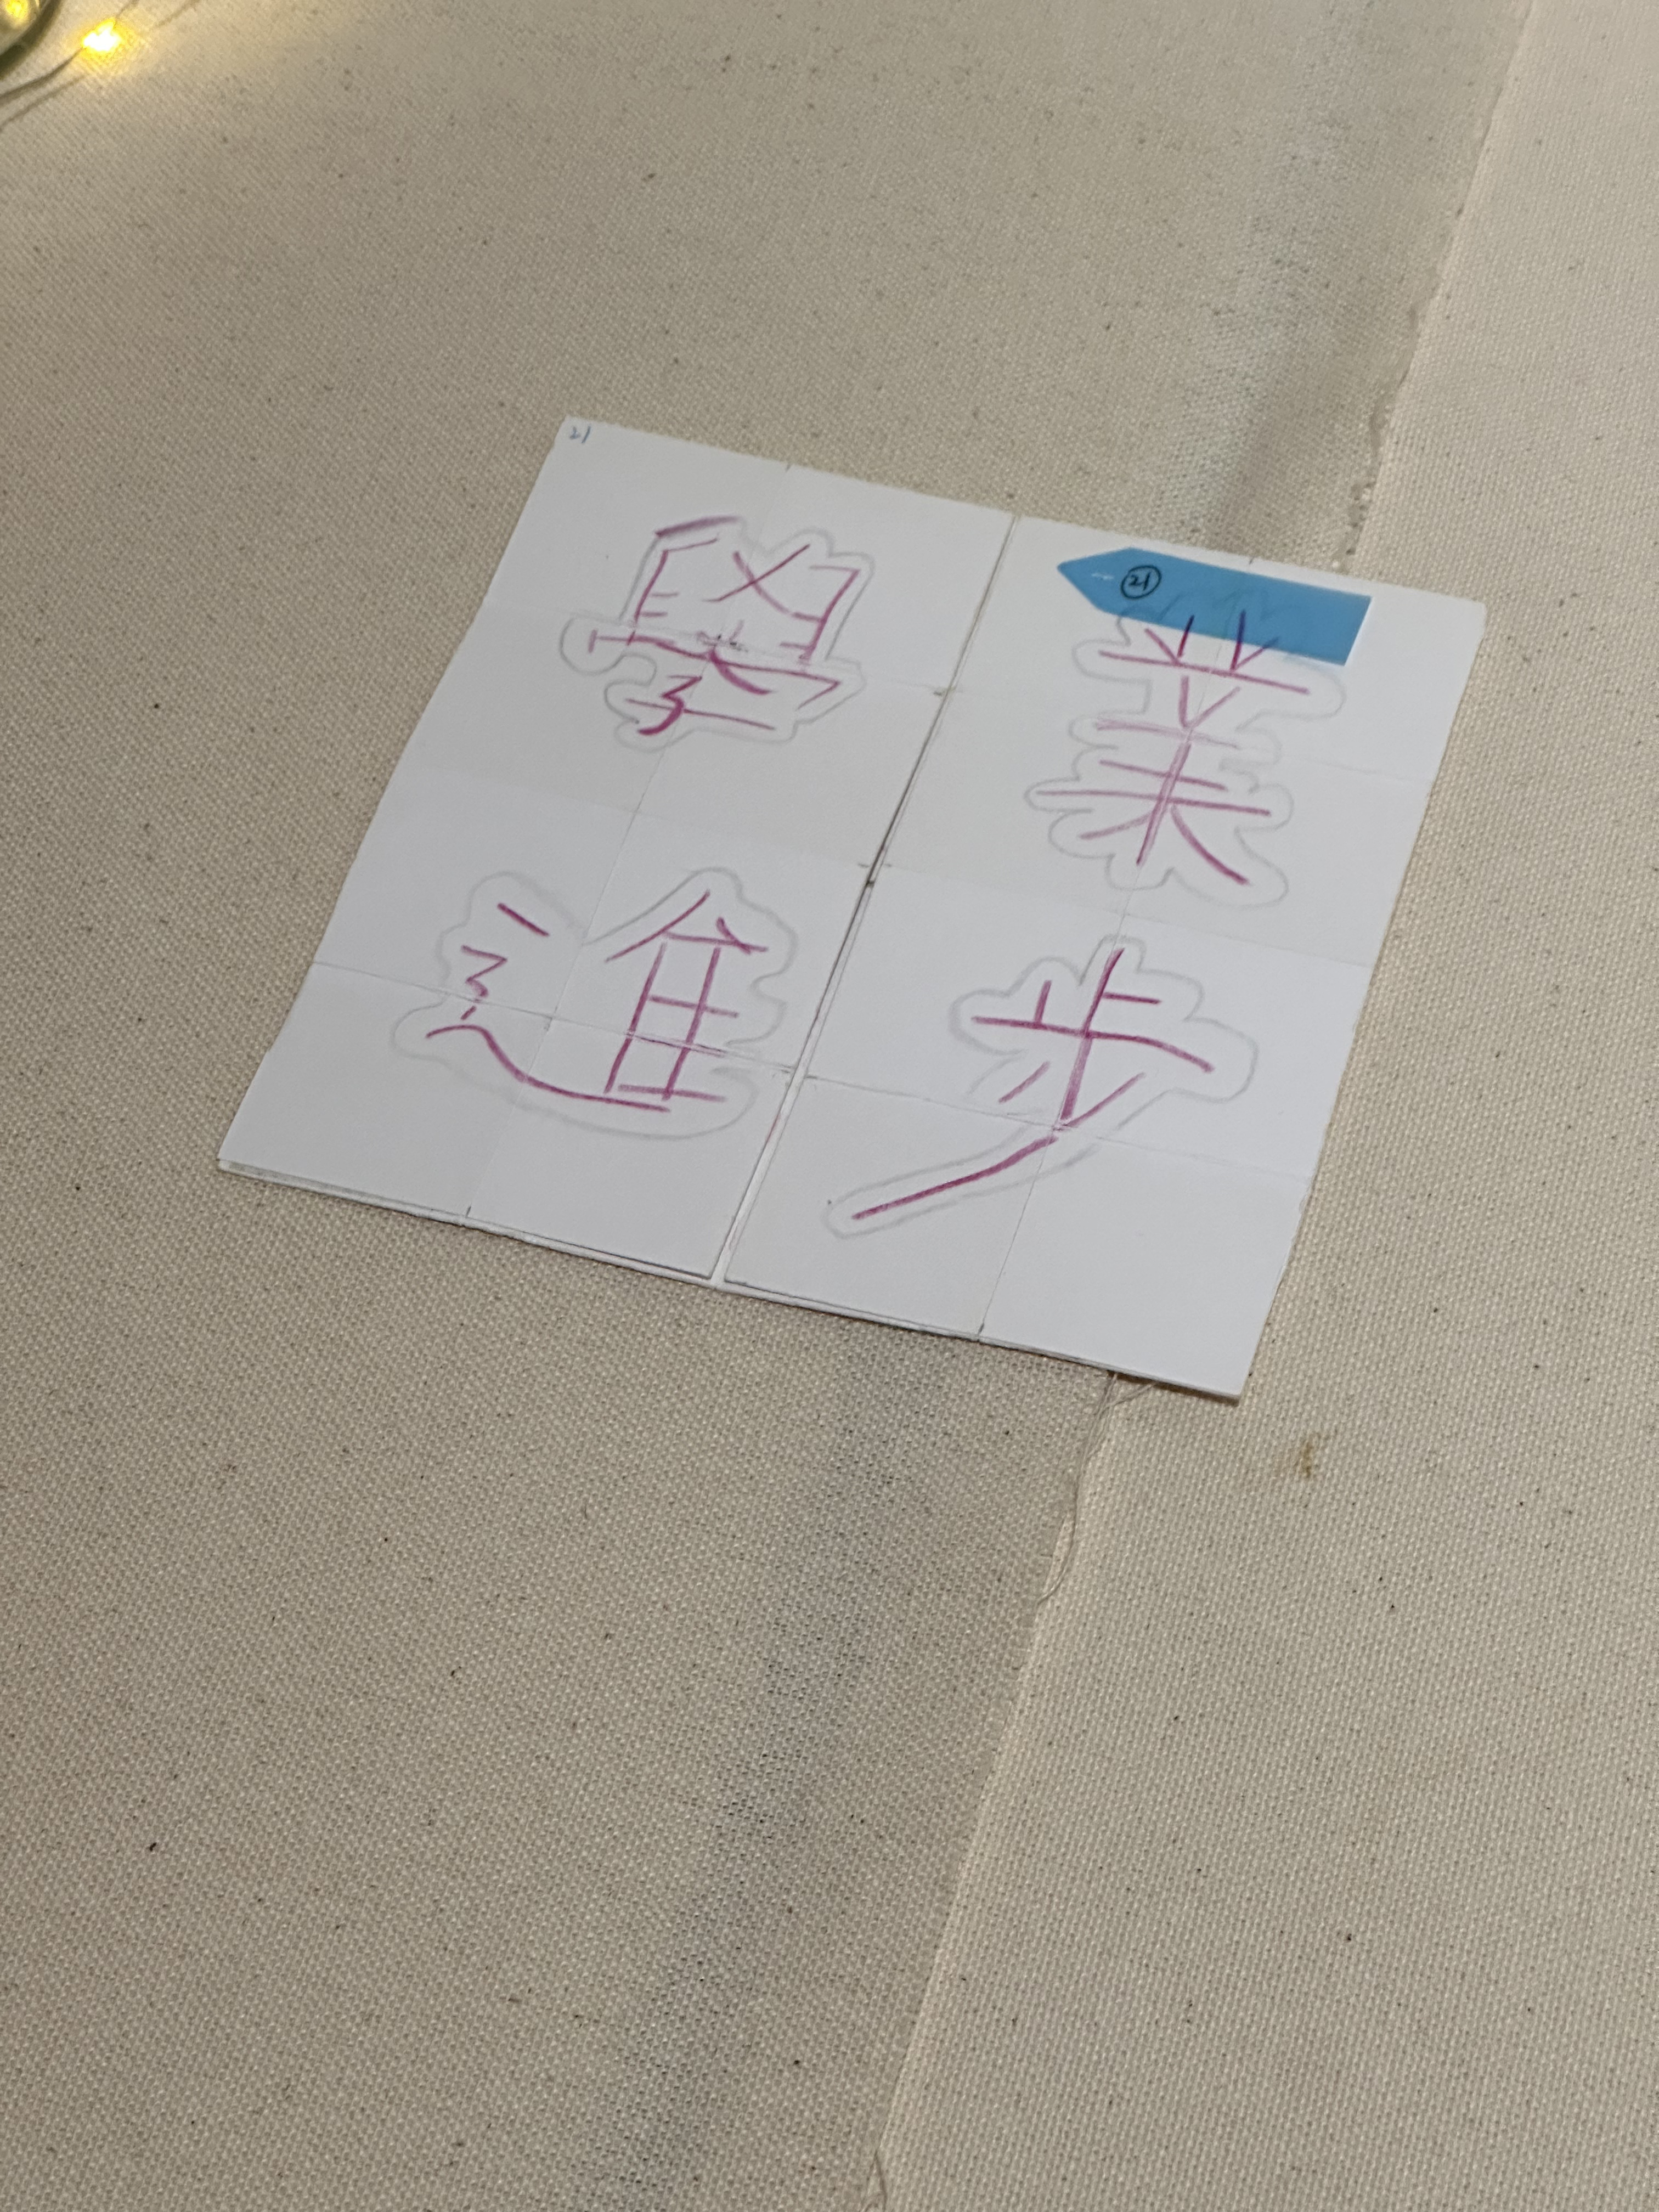 21
㉑
學業
進步